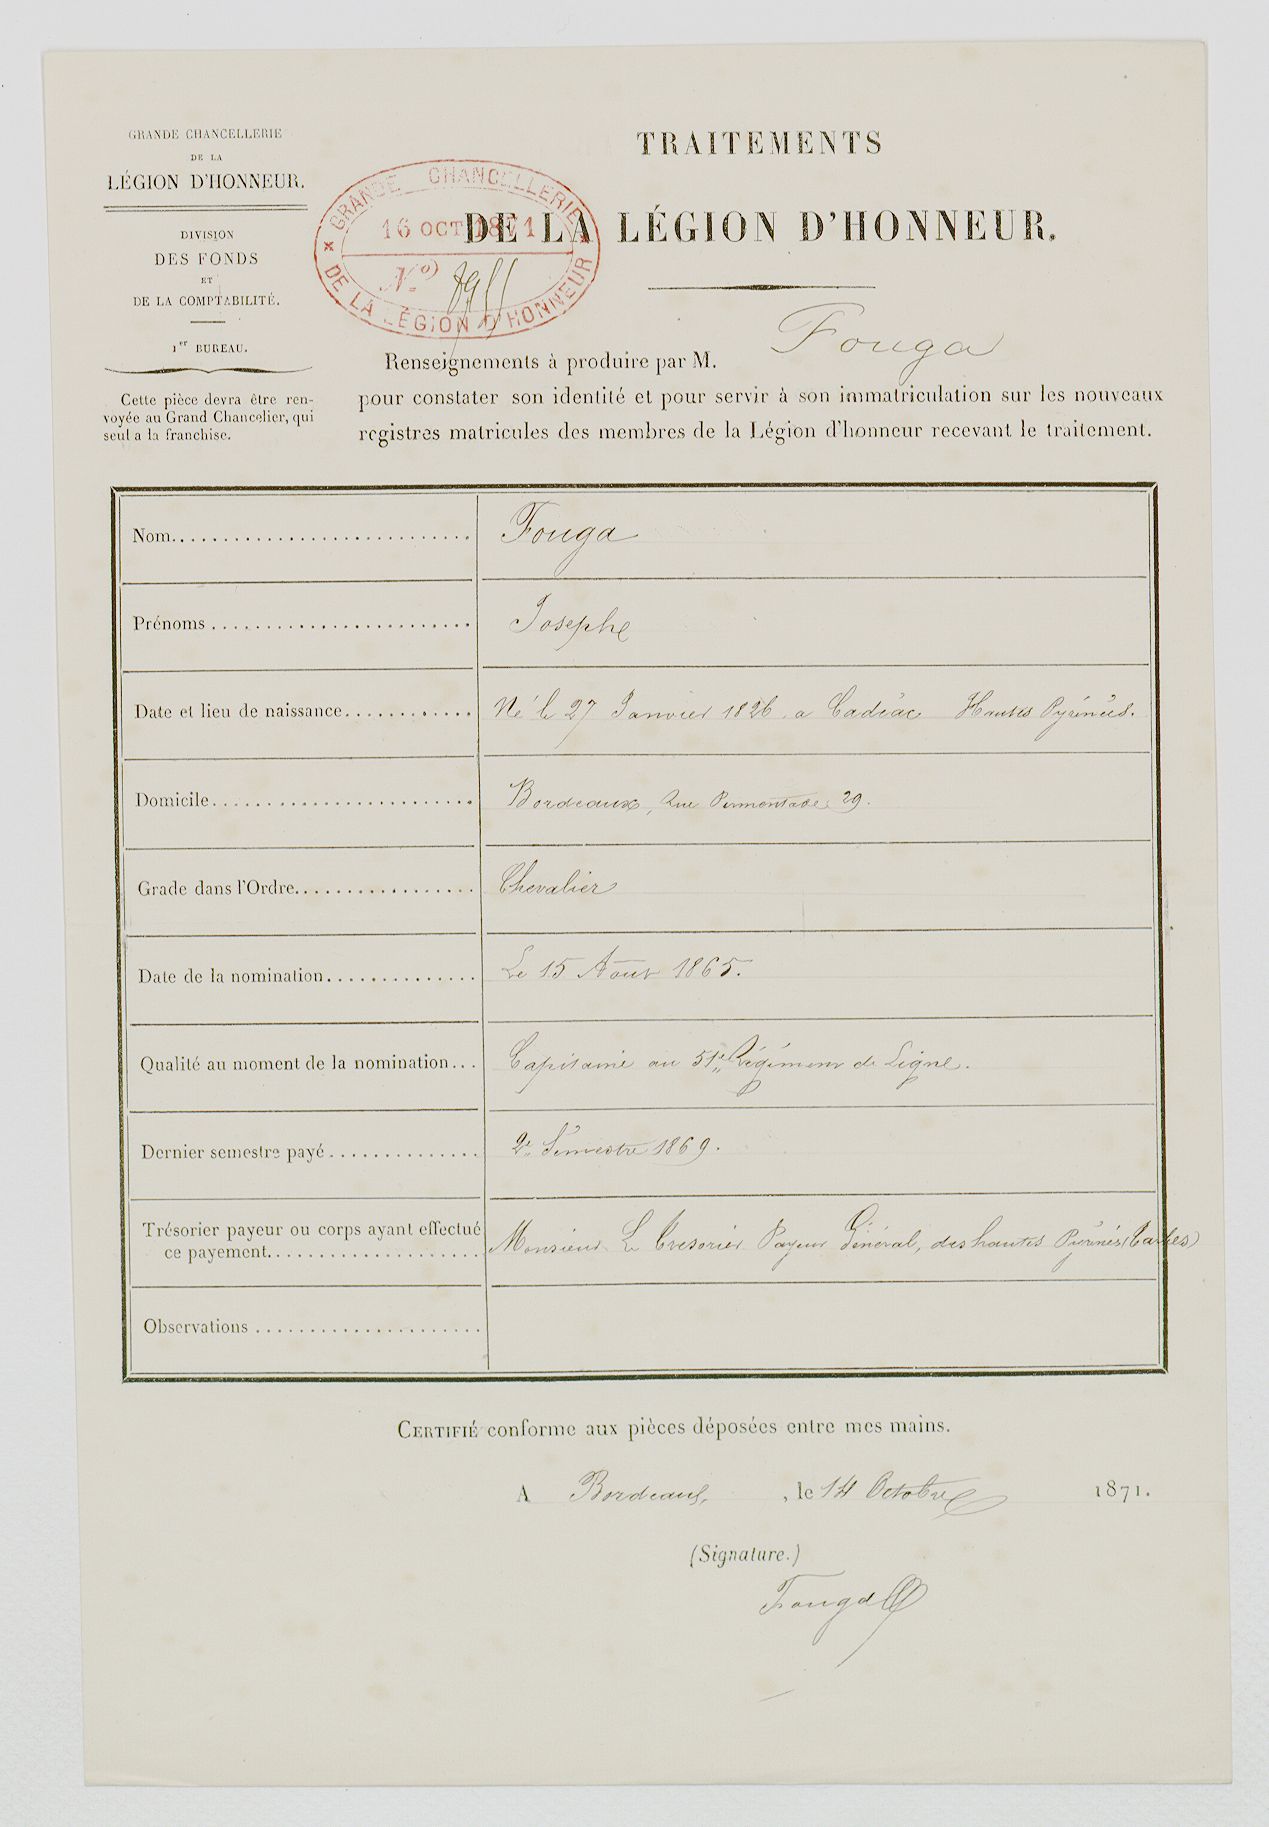 GRANDE CHANCELLERIE
DE LA
LÉGION D'HONNEUR.
DIVISION
DES FONDS
ET
DE LA COMPTABILITÉ.
1er BUREAU.
Cette pièce devra être ren-
voyée au Grand Chancelier, qui
seul a la franchise.
GRANDE CHANCELLERIE
16 OCT 1871
No
DE LA LÉGION D'HONNEUR
TRAITEMENTS
DE LA LÉGION D'HONNEUR.
Renseignements à produire par M. Fouga
pour constater son identité et pour servir à son immatriculation sur les nouveaux
registres matricules des membres de la Légion d'honneur recevant le traitement.
Nom Fouga
Prénoms Josephe
Date et lieu de naissance Né le 27 Janvier 1826 a Cadéac Hautes Pyrénées.
Domicile Bordeaux, Rue Permentade 29.
Grade dans l'Ordre Chevalier
Date de la nomination Le 15 Aout 1865.
Qualité au moment de la nomination Capitaine au 51e Régiment de Ligne.
Dernier semestre payé 2e Semestre 1869.
Trésorier payeur ou corps ayant effectué
ce payement Monsieur Le Tresorier Payeur Général, des hautes Pyrénés (Tarbes)
Observations
CERTIFIÉ conforme aux pièces déposées entre mes mains.
A Bordeaux, , le 14 Octobre 1871.
(Signature.)
Fouga